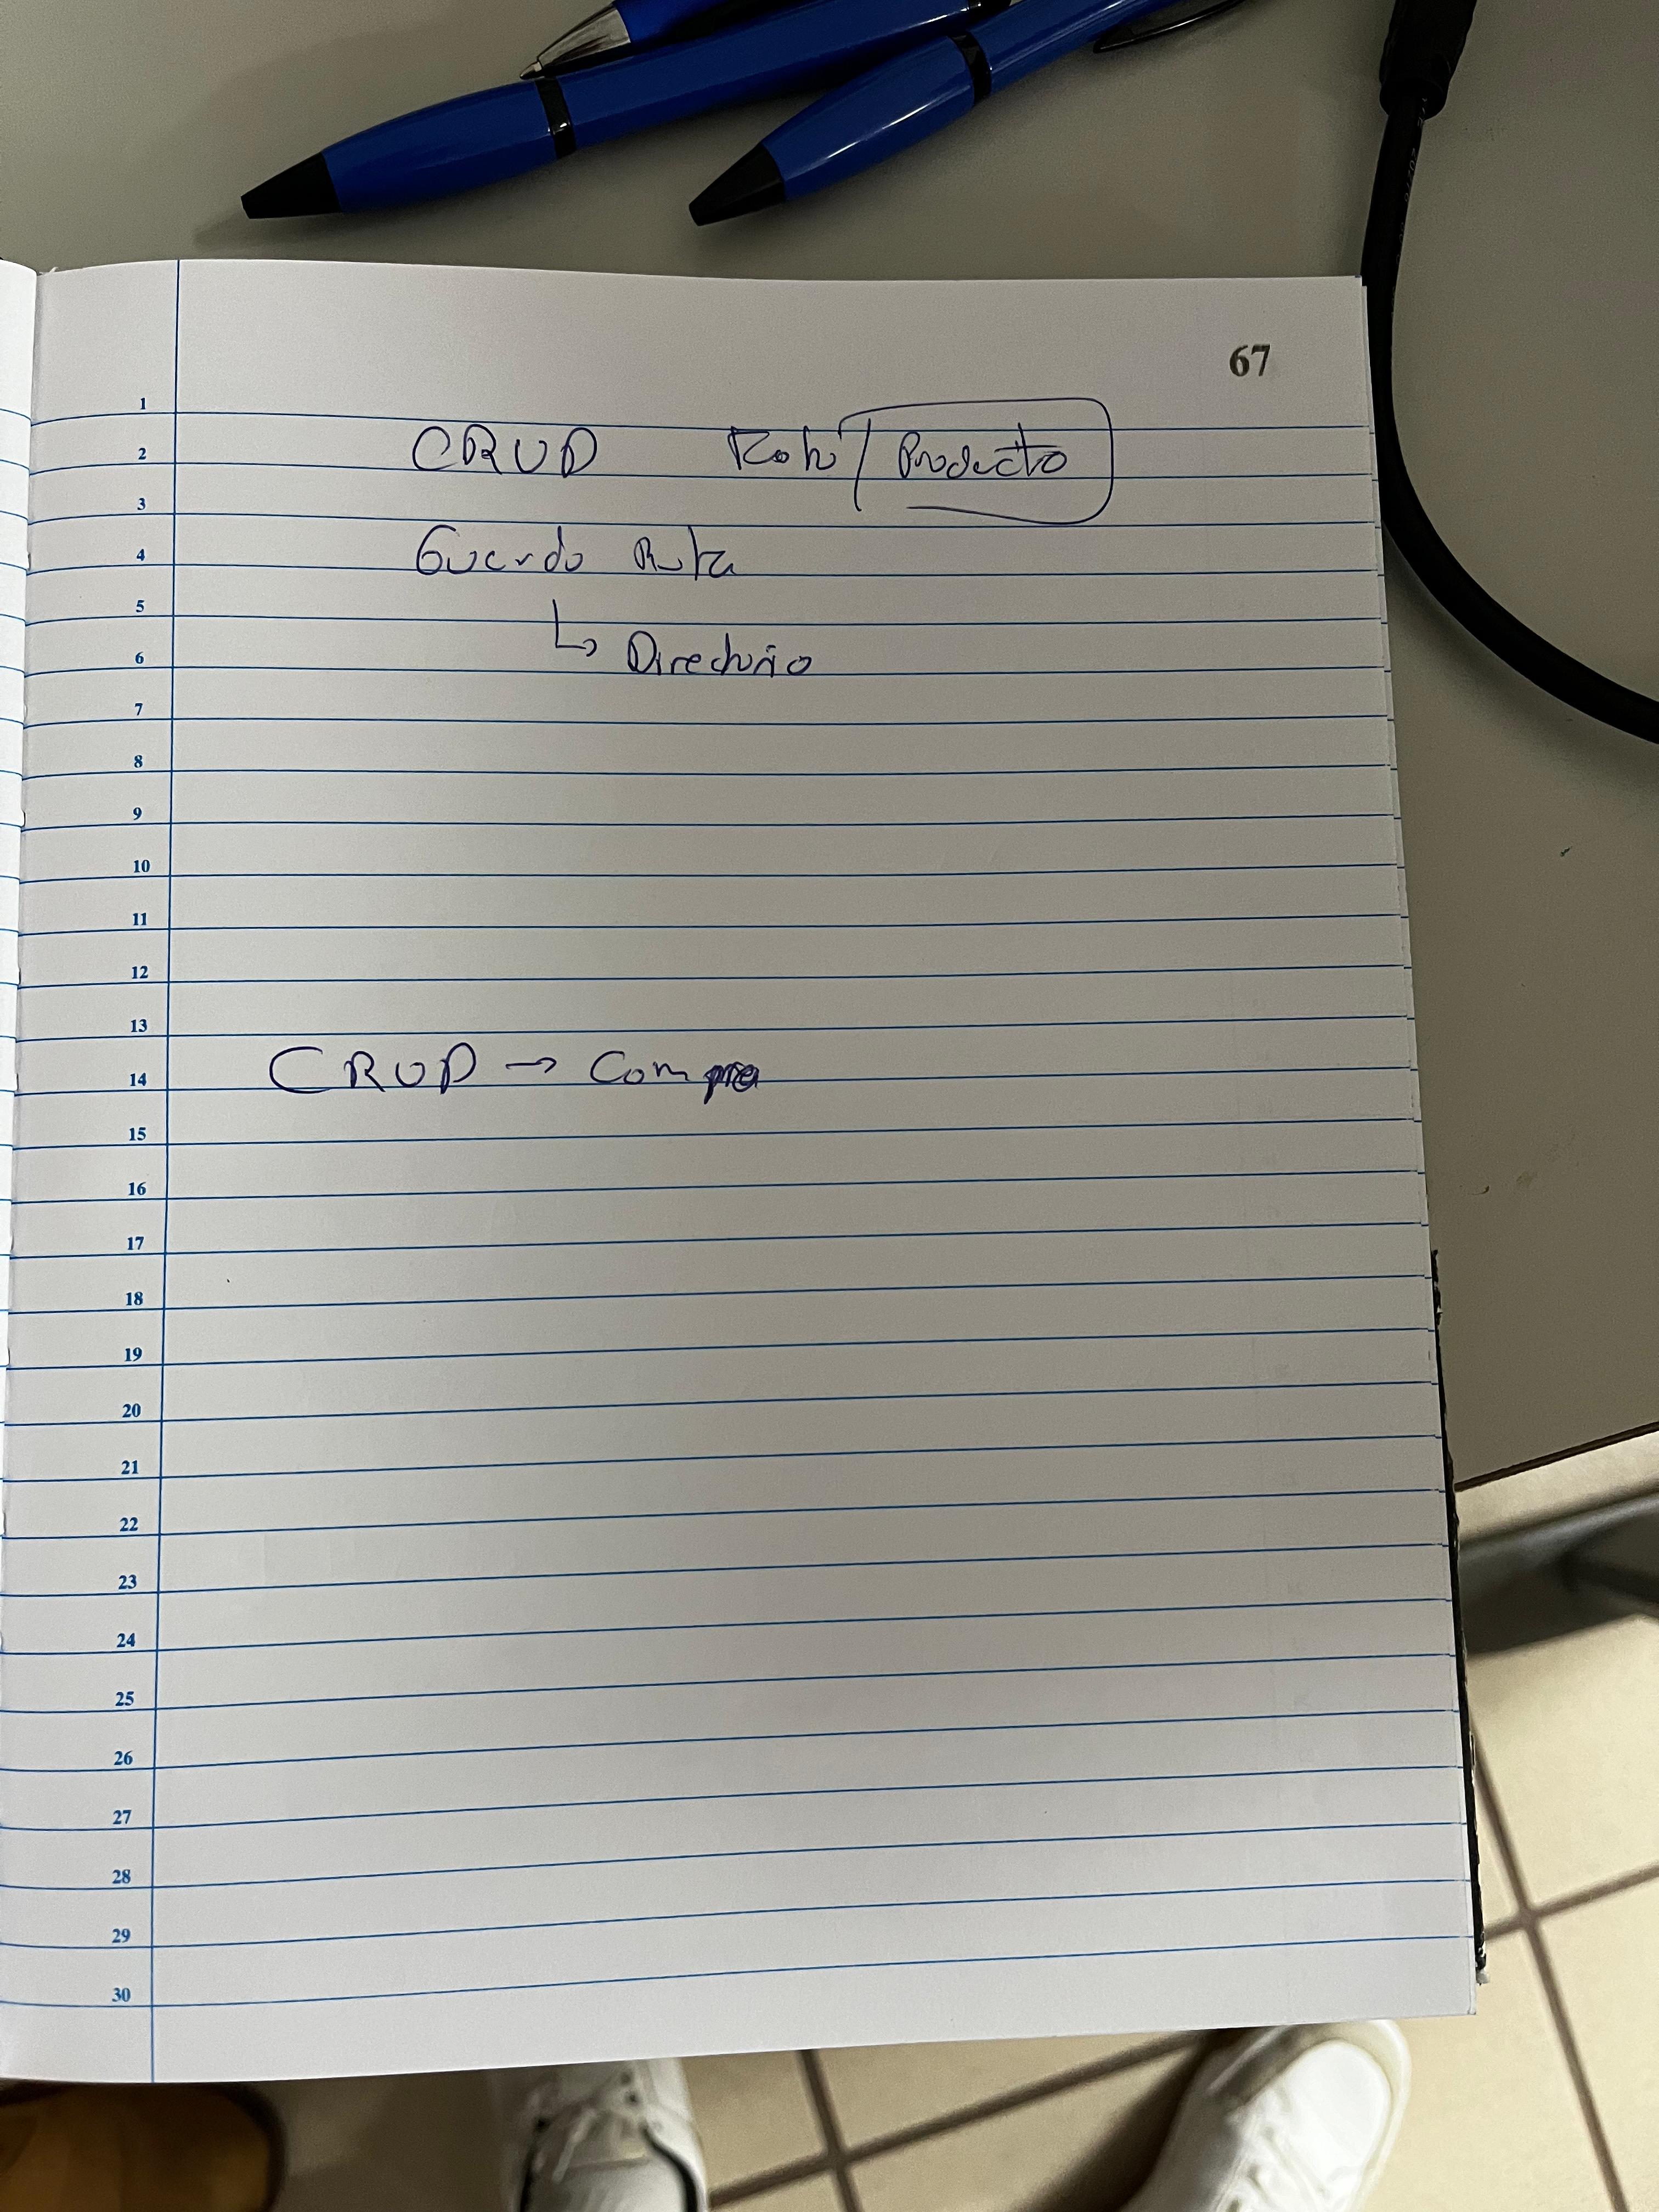 67
1
2 CRUD Foto / Producto
3
4 Guardo Ruta
5
6 ↳ Directorio
7
8
9
10
11
12
13
14 CRUD → Compra
15
16
17
18
19
20
21
22
23
24
25
26
27
28
29
30